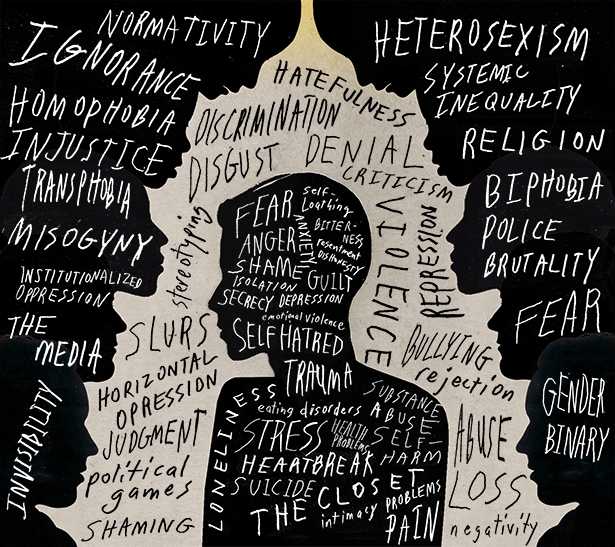 NORMATIVITY
IGNORANCE
HOMOPHOBIA
INJUSTICE
TRANSPHOBIA
MISOGYNY
INSTITUTIONALIZED
OPPRESSION
THE
MEDIA
INVISIBILITY
HETEROSEXISM
SYSTEMIC
INEQUALITY
RELIGION
BIPHOBIA
POLICE
BRUTALITY
FEAR
GENDER
BINARY
HATEFULNESS
DISCRIMINATION
DISGUST
DENIAL
CRITICISM
stereotyping
VIOLENCE
REPRESSION
SLURS
HORIZONTAL
OPRESSION
JUDGMENT
political
games
SHAMING
BULLYING
rejection
ABUSE
LOSS
negativity
FEAR
Self-
Loathing
ANXIETY
BITTER-
NESS
ANGER
resentment
DISHONESTY
SHAME
GUILT
ISOLATION
SECRECY DEPRESSION
emotional violence
SELF HATRED
TRAUMA
LONELINESS
eating disorders
SUBSTANCE
ABUSE
STRESS
HEALTH
PROBLEMS
SELF-
HARM
HEARTBREAK
SUICIDE
THE CLOSET
intimacy
PROBLEMS
PAIN